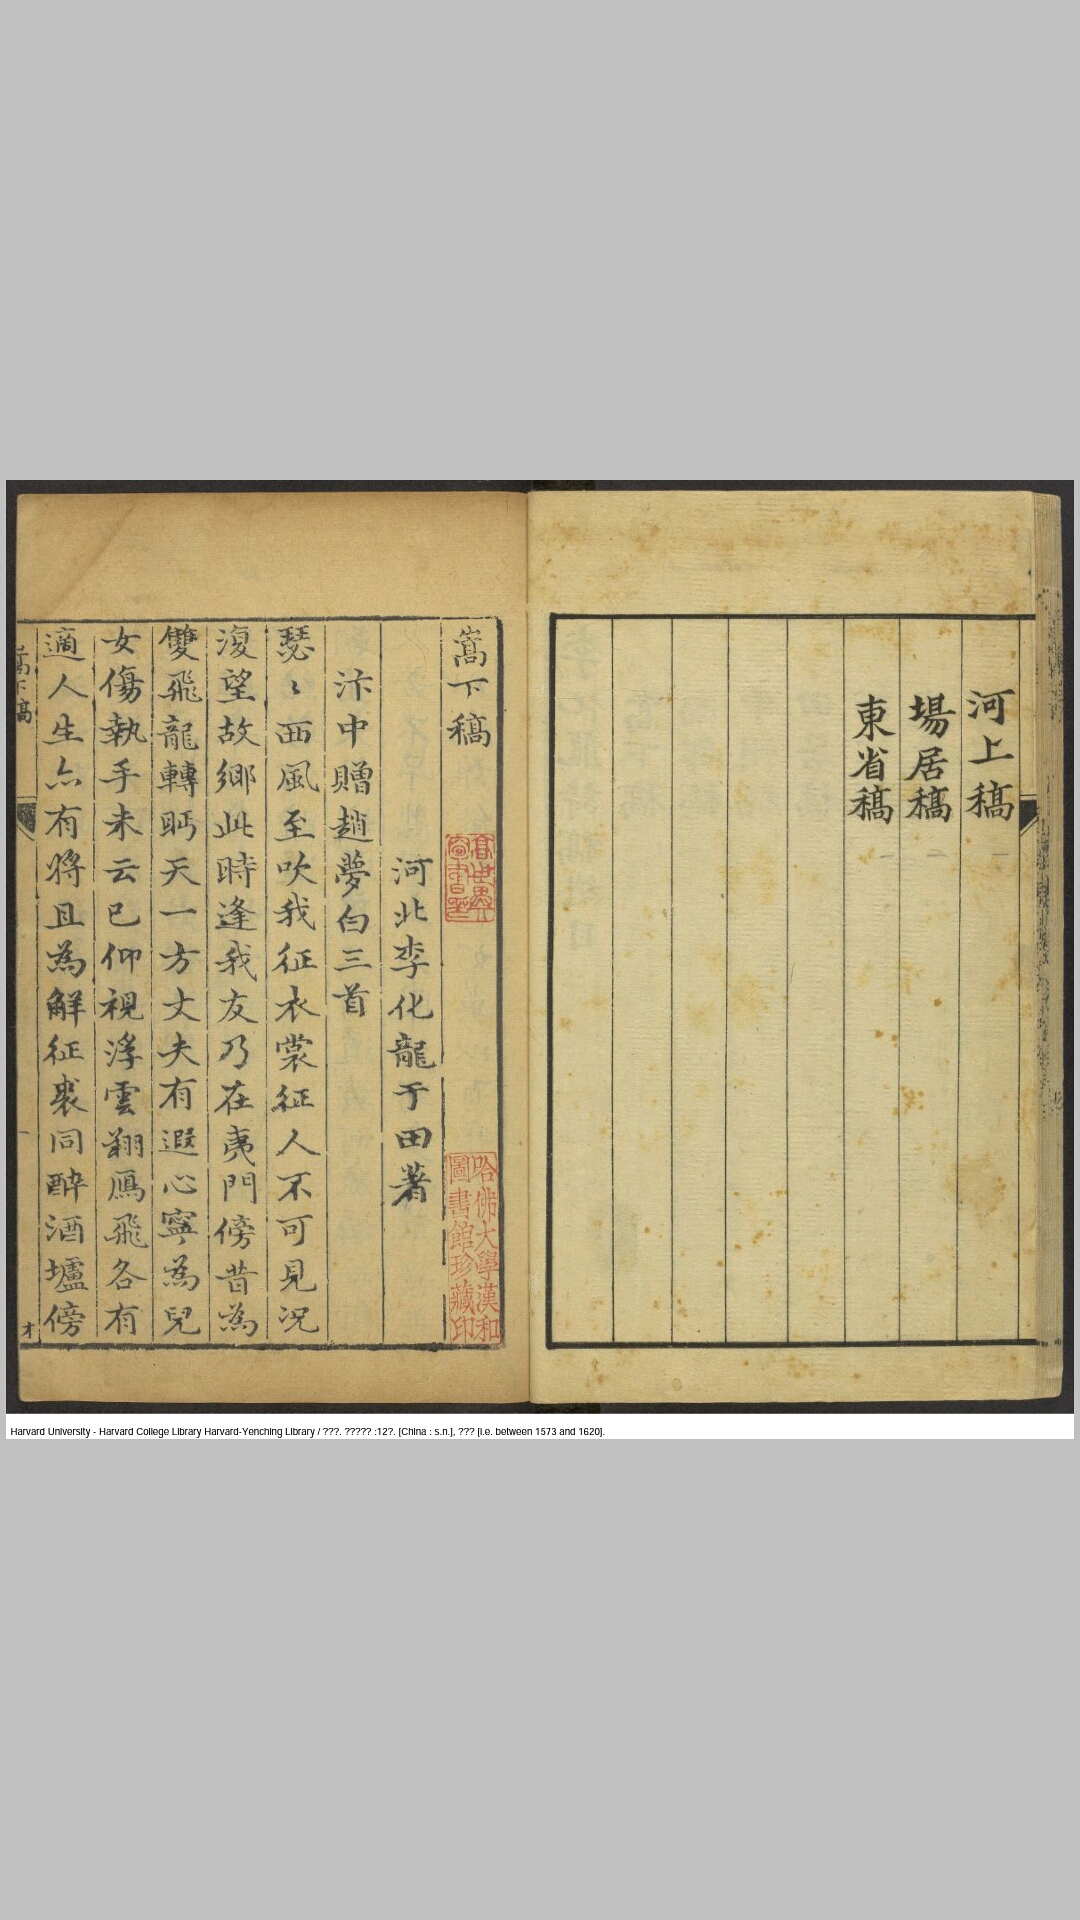 河上稿
場居稿
東省稿
嵩下稿
哈佛大學漢和
圖書館珍藏印
河北李化龍于田著
汴中贈趙夢白三首
瑟〻西風至吹我征衣裳征人不可見况
復望故鄉此時逢我友乃在夷門傍昔為
雙飛龍轉眄天一方丈夫有遐心寧為兒
女傷執手未云已仰視浮雲翔鴈飛各有
適人生亦有將且為解征裘同醉酒壚傍
嵩下稿
一
Harvard University - Harvard College Library Harvard-Yenching Library / ???. ????? :12?. [China : s.n.], ??? [i.e. between 1573 and 1620].